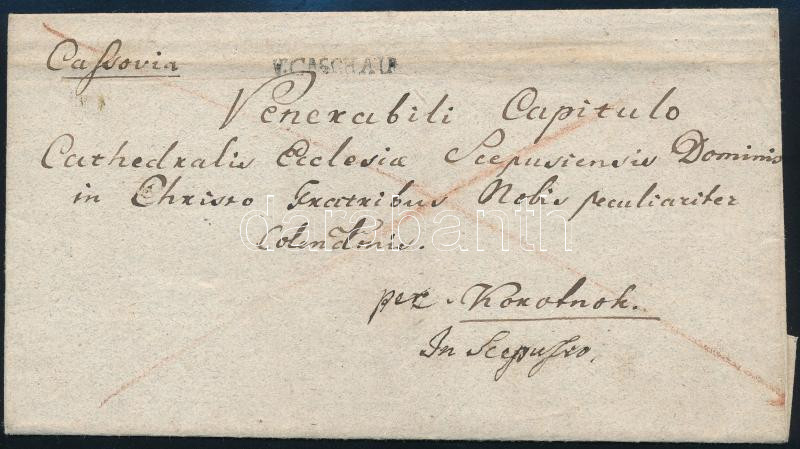 Cassovia
V.CASCHAU
Venerabili Capitulo
Cathedralis Ecclesiæ Scepusiensis Dominis
in Christo Fratribus Nobis peculiariter
Colendenis.
darabanth
per Korotnok.
In Scepusio.